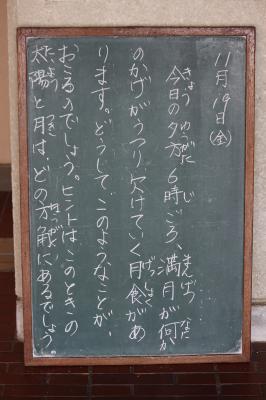 11月19日(金)
今日の夕方6時ごろ、満月が何か
のかげがうつり欠けていく月食があ
ります。どうして、このようなことが、
おこるのでしょう。ヒントはこのときの
太陽と月は、どの方角にあるでしょう。